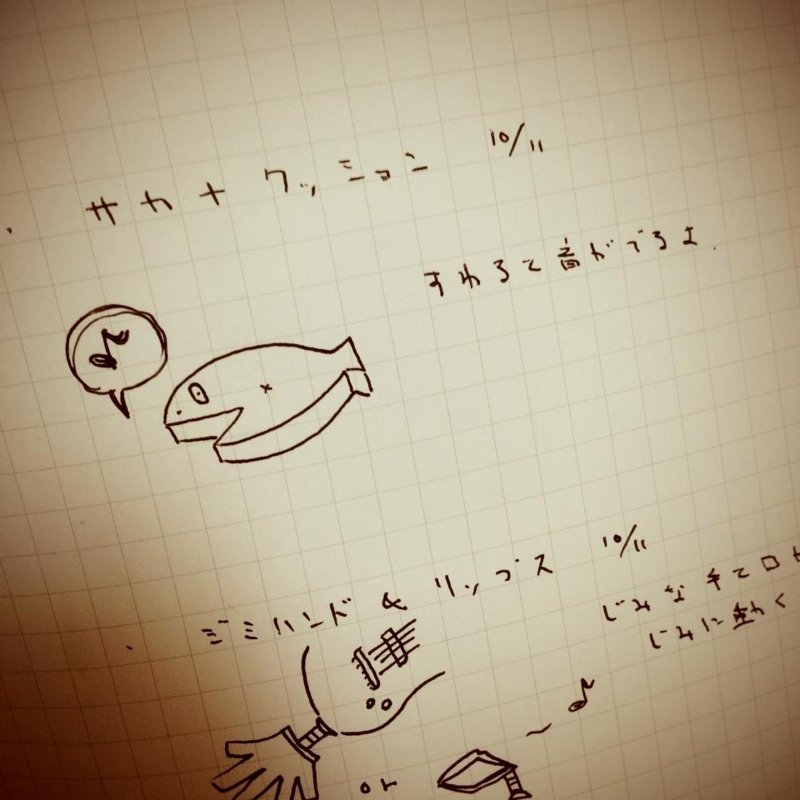 サカナクッション 10/11
すわると音がでるよ.
ジミハンド & リップス 10/11
じみな手と口が
じみに動く
or